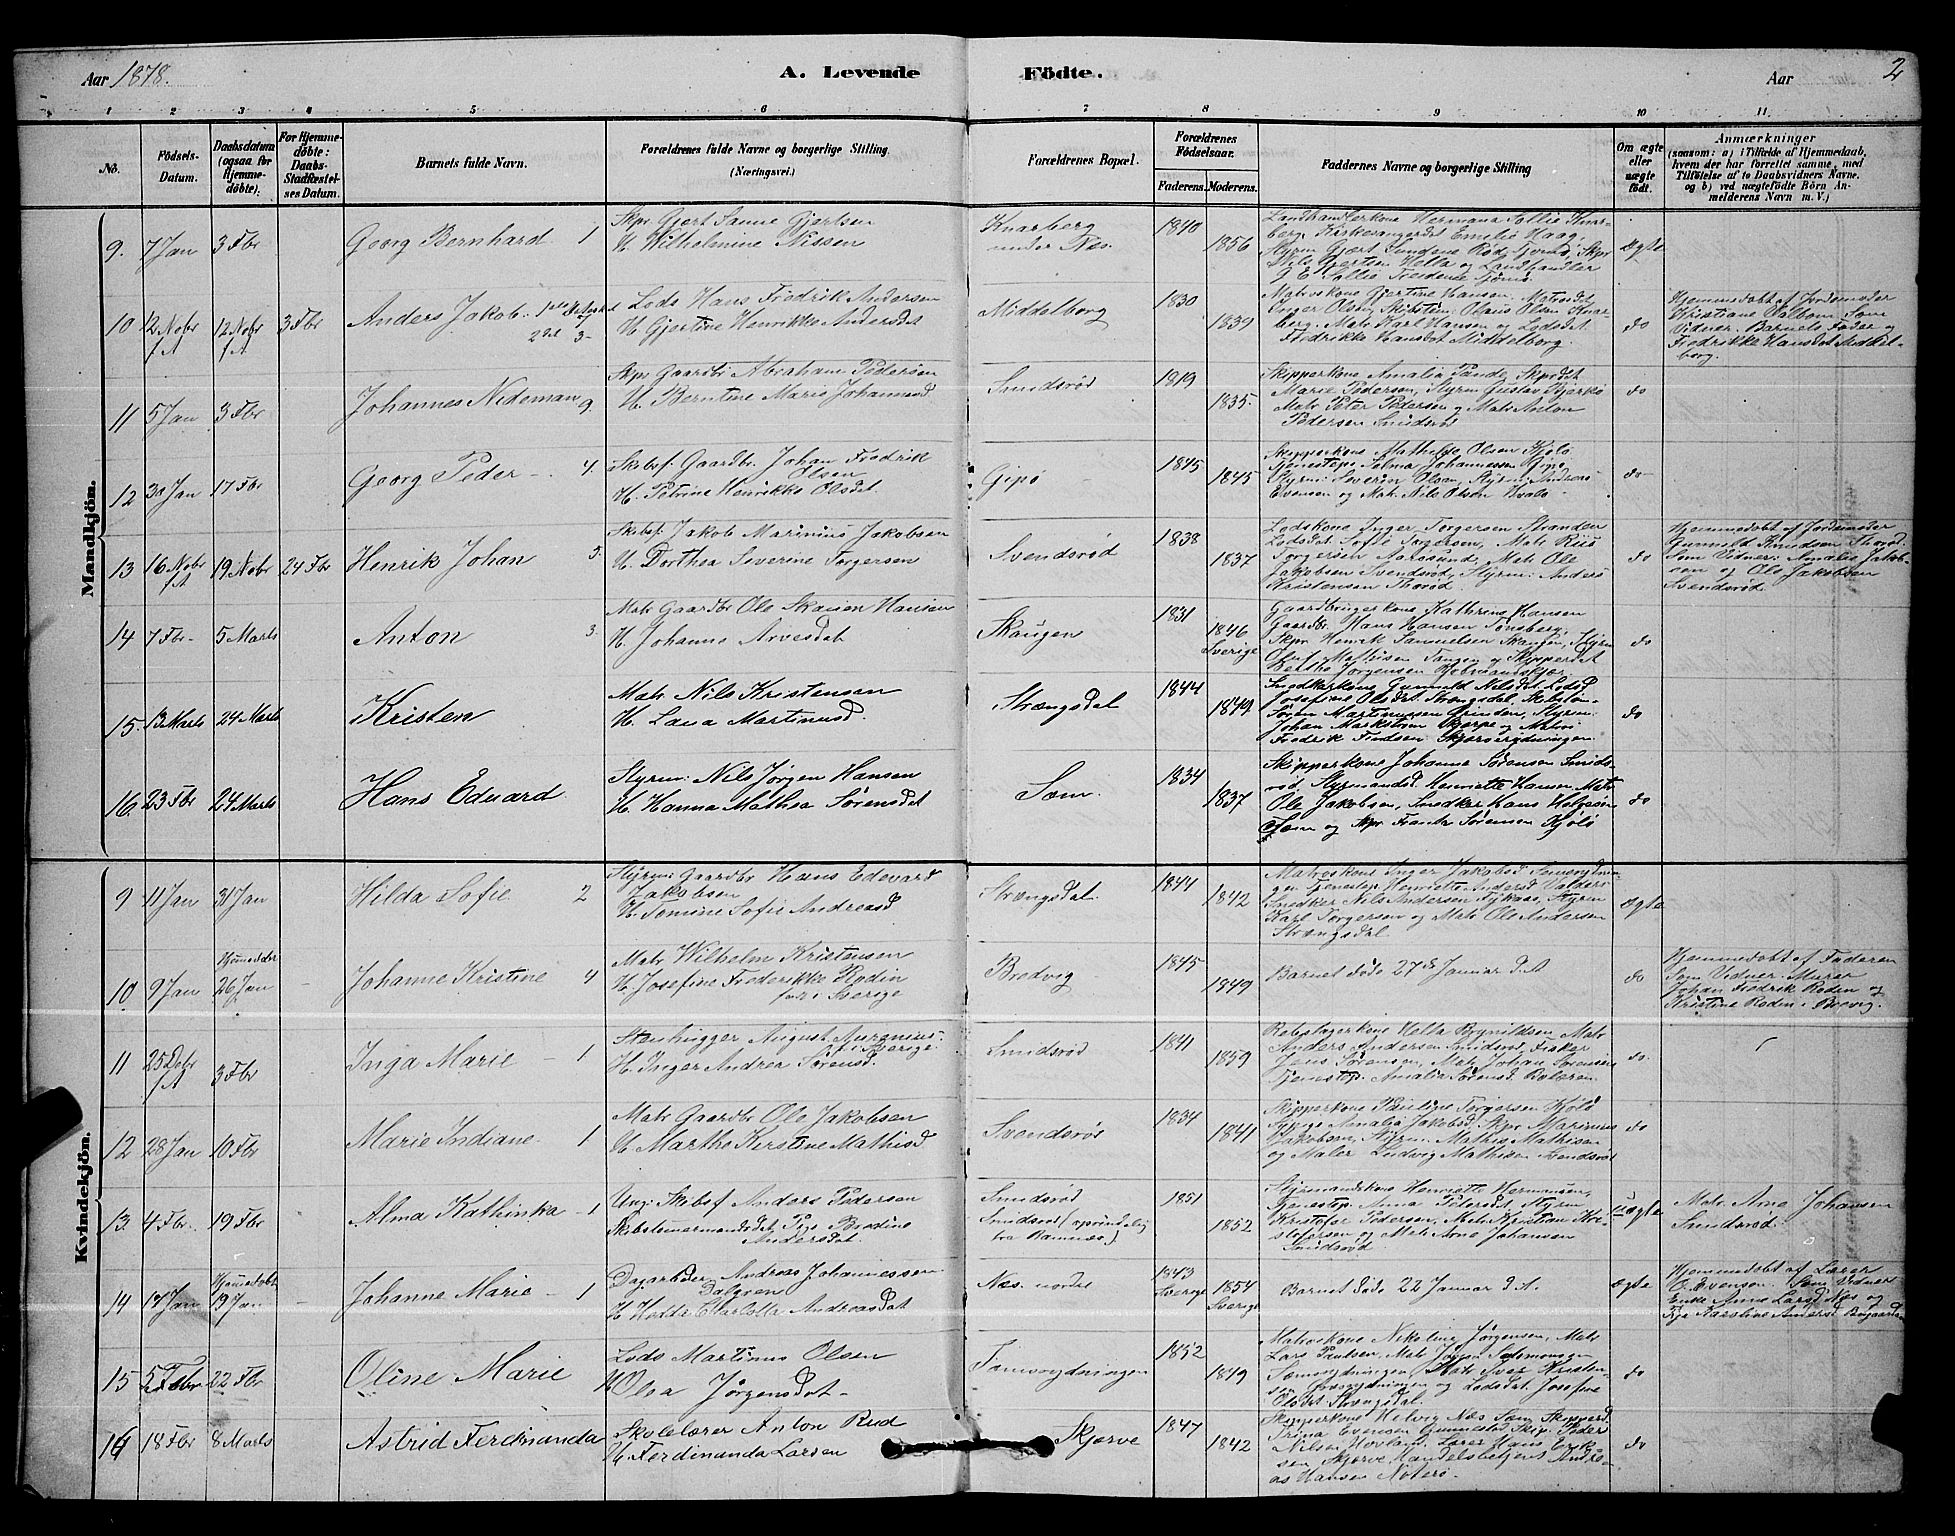 Aar 1878.
A. Levende
Födte.
Aar
2
1 2 3 4 5 6 7 8 9 10 11.
No.
Födsels-Datum.
Daabsdatum (ogsaa for Hjemmedöbte).
For Hjemmedöbte: Daabs-Stadfæstelses Datum.
Barnets fulde Navn.
Forældrenes fulde Navne og borgerlige Stilling (Næringsvei.)
Forældrenes Bopæl.
Forældrenes Födselsaar.
Faderens. Moderens.
Faddernes Navne og borgerlige Stilling
Om ægte eller uægte födt.
Anmærkninger
(saasom: a) i Tilfælde af Hjemmedaab, hvem der har forrettet samme, med Tilföielse af to Daabsvidners Navne. og b) ved uægtefödte Börn Anmelderens Navn m. V.)
Mandkjön.
9. 7 Jan 3 Fbr Georg Bernhard 1
Skpr Gjert Sanne Gjertsen
H. Wilhelmine Nissen
Knarberg under Næs.
1840 1856
Landhandlerkone Hermana Sollie Knarberg, Kirkesangerdet Emilie Haag
Ægte
10 12 Nobr f A 12 Nobr f A 3 Fbr Anders Jakob
Lods Hans Fredrik Andersen
H. Gjertine Henrikke Andersdt
Middelborg
1830 1839
Matroskone Gjertine Hansen, Matrosdet
Inger Olsen, Skibstim: Olaus Olsen Knarberg, Matr Karl Hansen og Lodsdet
Fredrikke Hansdet Middelborg.
do
Hjemmedøbt af Jordemoder
Kristiane Dalbom. Som
Vidner: Barnets Fader og
Fredrikke Hansdet Middelborg.
11 5 Jan 3 Fbr Johannes Nideman 9.
Skpr Gaardbr Abraham Pedersen
H. Berntine Marie Johannesd
Smidsrød
1819 1835.
Skipperkone Amalia Pande, Skprdet
Marie Pedersen, Styrm Gustav Bjerkø
Matr Peter Pedersen og Matr Anton
Pedersen Smidsrød
do
12 30 Jan 17 Fbr Georg Peder 4.
Skibsf. Gaardbr. Johan Fredrik Olsen
H. Petrine Henrikke Olsdet.
Gipø
1845 1845
Skipperkone Mathilde Olsen Kjøle
Tjenestep. Selma Johannessen Gipø
Styrm: Severin Olsen, Styrm: Andreas
Evensen og Matr. Nils Olsen Hvalø
do
13 16 Nobr f A 19 Nobr 24 Fbr Henrik Johan 5.
Skibsf. Jakob Marinius Jakobsen
H. Dorthea Severine Torgersen
Svendsrød
1838 1837
Lodskone Inger Torgersen Stranden
Lodsdet Sofie Torgersen, Matr Riis
Torgersen Aarøsund, Matr Ole
Jakobsen Svendsrød, Styrm: Anders
Kristensen Thorød.
do
Hjemmedøbt af Jordemoder
Gunnild Knudsen Thorød
Som Vidner: Amalie Jakobsen og Ole Jakobsen
Svendsrød.
14 7 Fbr 5 Marts Anton 3.
Matr Gaardbr Ole Skauen Hansen
H. Johanne Arvesdet
Skaugen
1831 1846 Sverige
Gaardbrugerkone Kathrine Hansen
Gaardbr. Hans Hansen Tønsberg
Skpr Henrik Samuelsen Skaugen, Styrm
do
15 13 Marts 24 Marts Kristen
Matr Nils Kristensen
H. Lava Martinusd.
Strængsdal
1844 1849
do
16. 23 Fbr 24 Marts Hans Eduard
Styrm: Nils Jørgen Hansen
H. Hanna Mathea Sørensdet
Sem.
1834 1837
Skipperkone Johanna Sørensen Smidsrød, Styrmandsd. Henriette Hansen, Matr
Ole Jakobsen, Snedker Hans Helgesen
Sem og Skpr Frantz Sørensen Kjøle
do
Kvindekjön.
9 11 Jan 31 Jan Hilda Sofie 2
Styrm: Gaardbr Hans Edevard Jakobsen
H. Tomine Sofie Andreasd
Strængsdal.
1844 1842
Karl Torgersen og Matr Ole Andersen
Strængsdal
Ægte
10 9 Jan Hjemmedøbt 26 Jan Johanne Kristine 4
Matr Wilhelm Kristensen
H. Josefine Frederikke Rodin
født i Sverige
Bredvig
1845 1849
Barnet døde 27de Januar d. A
do
Hjemmedøbt af Faderen
Som Vidner: Murer
Johan Fredrik Roden og
Kristine Roden i Brevig.
11 25 Debr f A 3 Fbr Inga Marie 1
Stenhugger August
f. i Sverige
H. Inger Andrea Sørensd.
Smidsrød
1841 1859
Rebslagerkone Hella Brynildsen, Matr
Anders Andersen Smidsrød, Fisker
Jens Sørensen, Matr Johan Sørensen
Tjenestep. Amalia Sørensd. Bolæren
do.
12 28 Jan 10 Fbr Marie Indiane 1
Matr Gaardbr Ole Jakobsen
H. Marthe Kirstine Mathisd
Svendsrød
1834 1841
Skipperkone Pauline Torgersen Kjøle
Sypige Amalia Jakobsd, Skpr Marinius
Jakobsen, Styrm: Mathis Mathisen
og Maler Ludvig Mathisen Svendsrød
do
13 4 Fbr. 19 Fbr Alma Kathinka 1
Ung. Skibsf Anders Pedersen
Skibstømmermandsdet Pige Bredine Andersdet.
Smidsrød
Smidsrød (oprindelig fra Ramnæs).
1851 1852
Styrmandskone Henriette Hermansen,
Tjenestep. Anna Pedersdt, Styrm
Kristofer Pedersen, Matr Kristian Kristofersen og Matr Arne Johansen
Smidsrød
uægte
Matr. Arne Johansen
Smidsrød.
14 17 Jan Hjemmedøbt 19 Jan Johanne Marie 1
Dagarbeider Andreas Johannessen Dalgren
H. Hedda Charlotta Andreasdet
Næs. nordre
1843 Sverige 1854 Sverige
Barnet døde 22 Januar d. A.
ægte
Hjemmedøbt af Lærer
O. Evensen. Som Vidner
Enke Anne Larsd Næs og
15 5 Febr 22 Fbr Oline Marie
Lods Martinus Olsen
H Olva Jørgensdet
Tømsrydningen
1852 1849
Matroskone Nikoline Jørgensen, Matr
Lars Paulsen, Matr Jørgen Salomonsen
do
16 18 Fbr 8 Marts Astrid Ferdinanda
Skolelærer Anton Rud
H. Ferdinanda Larsen
Skjerve
1847 1842
Skipperkone Helvig Næs Sem, Skipperd.
Trina Evensen Gunnestad, Skip. Peder
Nilsen Hovland, Lærer Hans Eriksen Skjerve, Handelsbetjent Andreas Hansen Nøterø.
do